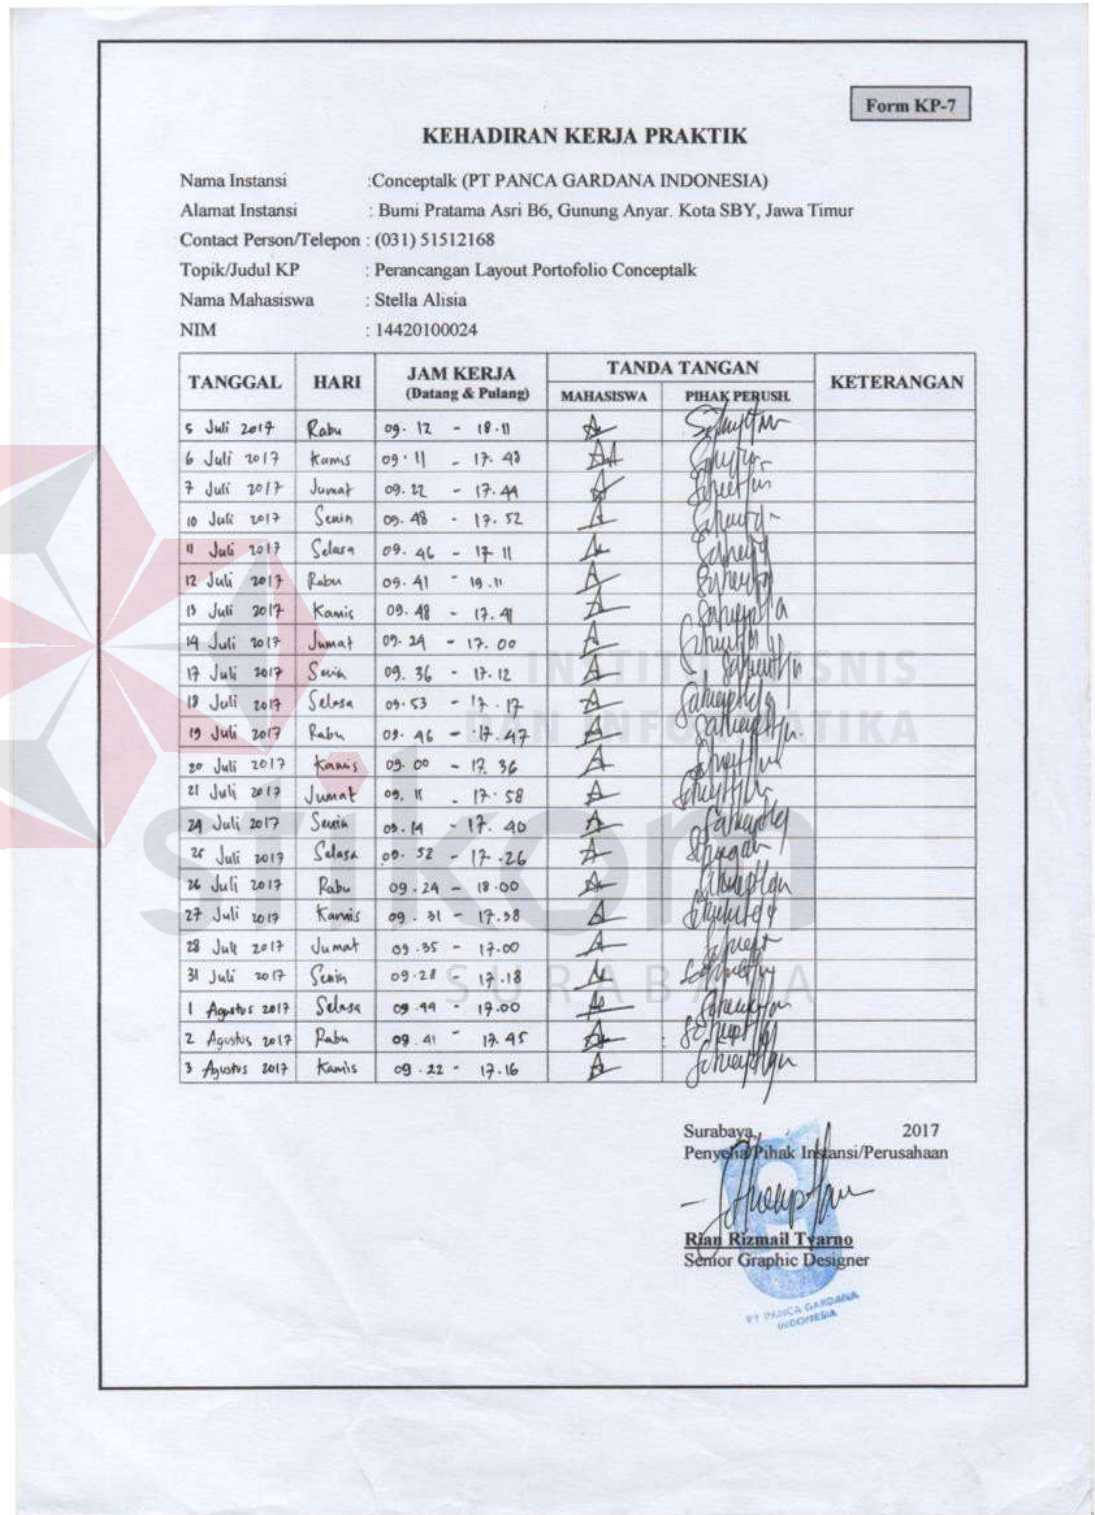 Form KP-7
KEHADIRAN KERJA PRAKTIK
Nama Instansi :Conceptalk (PT PANCA GARDANA INDONESIA)
Alamat Instansi : Bumi Pratama Asri B6, Gunung Anyar. Kota SBY, Jawa Timur
Contact Person/Telepon : (031) 51512168
Topik/Judul KP : Perancangan Layout Portofolio Conceptalk
Nama Mahasiswa : Stella Alisia
NIM : 14420100024
TANGGAL HARI JAM KERJA (Datang & Pulang) TANDA TANGAN KETERANGAN
MAHASISWA PIHAK PERUSH.
5 Juli 2017 Rabu 09.12 - 18.11
6 Juli 2017 Kamis 09.11 - 17.43
7 Juli 2017 Jumat 09.22 - 17.44
10 Juli 2017 Senin 09.48 - 17.52
11 Juli 2017 Selasa 09.46 - 17.11
12 Juli 2017 Rabu 09.41 - 19.11
13 Juli 2017 Kamis 09.48 - 17.41
14 Juli 2017 Jumat 09.24 - 17.00
17 Juli 2017 Senin 09.36 - 17.12
18 Juli 2017 Selasa 09.53 - 17.17
19 Juli 2017 Rabu 09.46 - 17.47
20 Juli 2017 Kamis 09.00 - 17.36
21 Juli 2017 Jumat 09.11 - 17.58
24 Juli 2017 Senin 09.14 - 17.40
25 Juli 2017 Selasa 09.52 - 17.26
26 Juli 2017 Rabu 09.24 - 18.00
27 Juli 2017 Kamis 09.31 - 17.38
28 Juli 2017 Jumat 09.35 - 17.00
31 Juli 2017 Senin 09.28 - 17.18
1 Agustus 2017 Selasa 09.44 - 17.00
2 Agustus 2017 Rabu 09.41 - 17.45
3 Agustus 2017 Kamis 09.22 - 17.16
INSTITUT BISNIS
DAN INFORMATIKA
stikom
SURABAYA
Surabaya, 2017
Penyelia/Pihak Instansi/Perusahaan
Rian Rizmail Tyarno
Senior Graphic Designer
PT PANCA GARDANA
INDONESIA